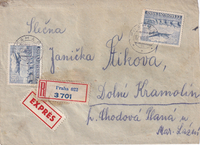 Slečna
Janička Žikova,
Dolní Kramolín
p. Chodová Planá u
Mar. Lázní
Praha 022
3701
EXPRES